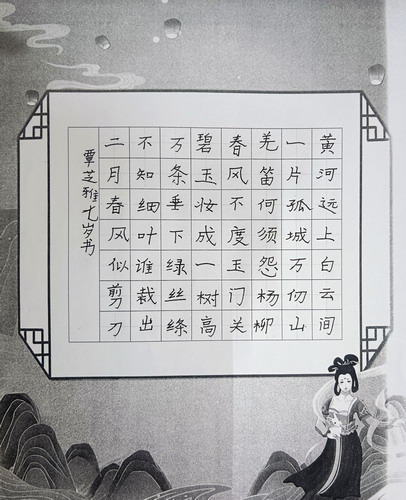 黄河远上白云间
一片孤城万仞山
羌笛何须怨杨柳
春风不度玉门关
碧玉妆成一树高
万条垂下绿丝绦
不知细叶谁裁出
二月春风似剪刀
覃芝雅七岁书